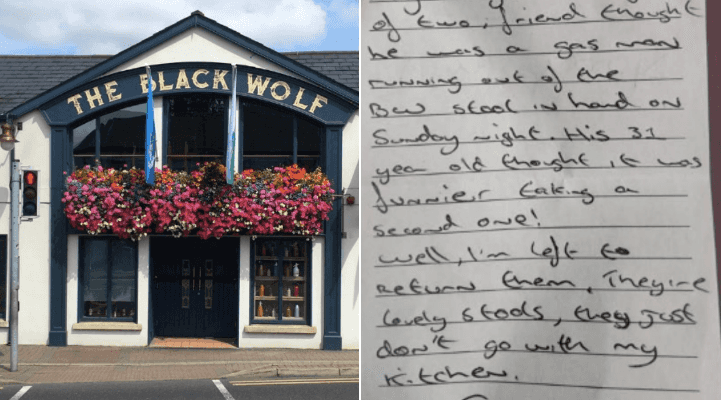 THE BLACK WOLF
of two, friend thought
he was a gas man
running out of the
BW stool in hand on
Sunday night. His 31
year old thought it was
funnier taking a
second one!
Well, I'm left to
Return them. They're
lovely stools, they just
don't go with my
Kitchen.